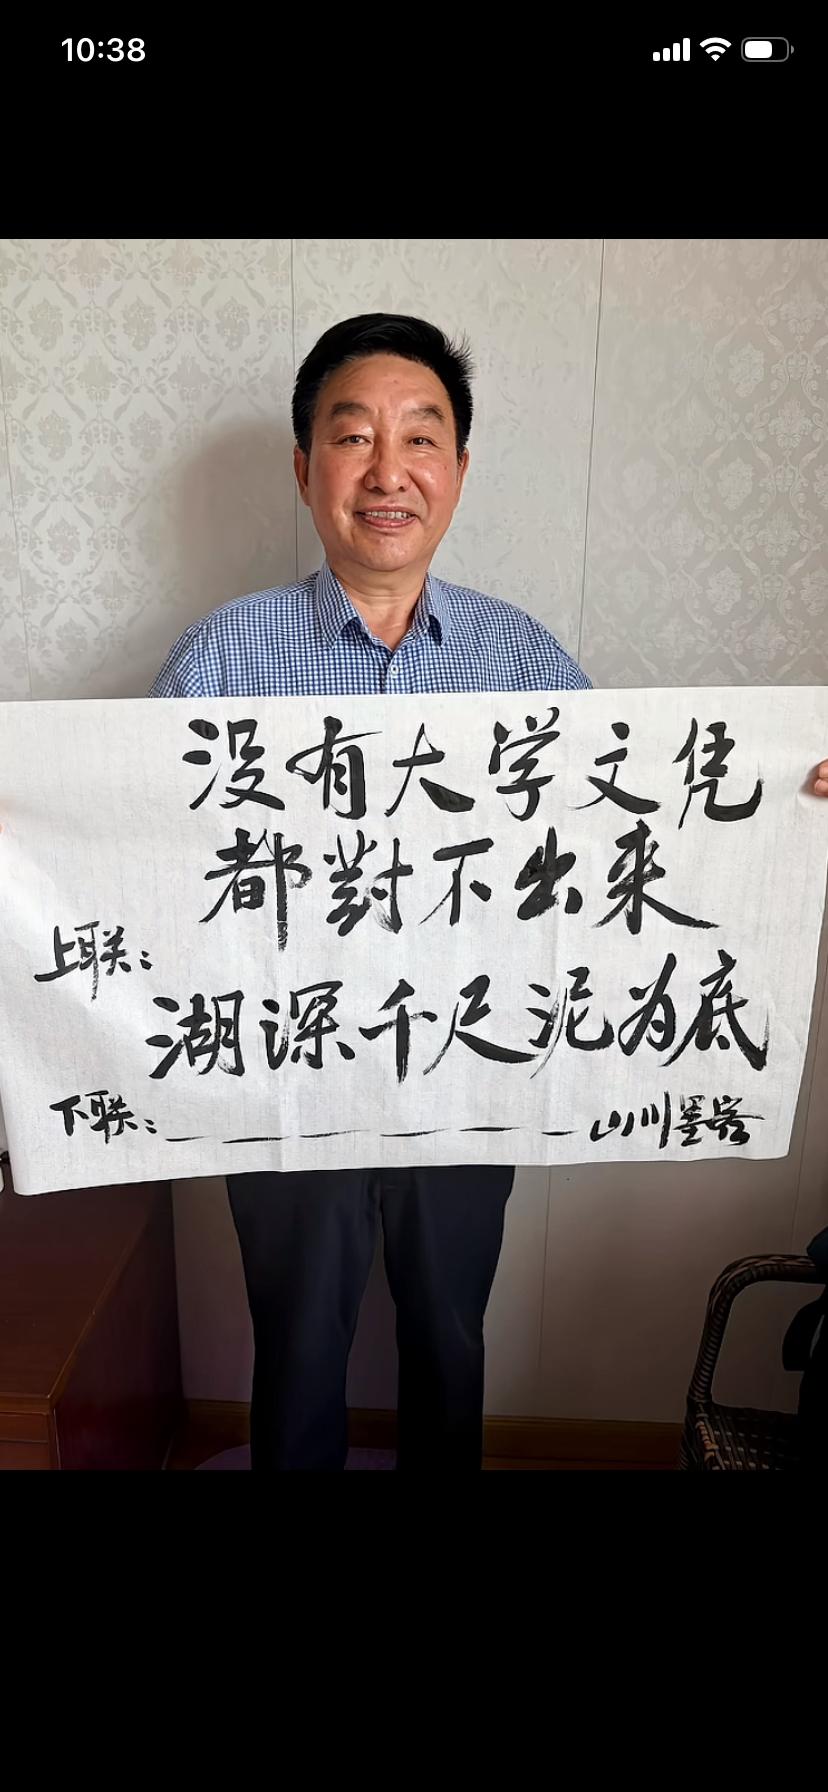 10:38
没有大学文凭
都對不出来
上联：
湖深千尺泥为底
下联：_ _ _ _ _ _ _ 山川墨客